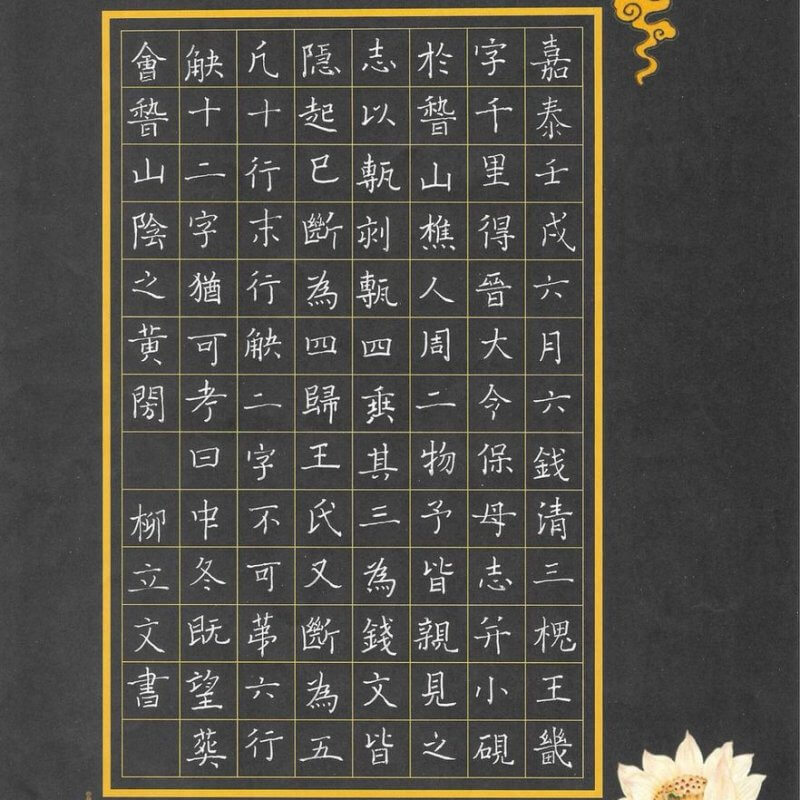 嘉泰壬戌六月六錢清三槐王畿
字千里得晉大令保母志并小硯
於嵇山樵人周二物予皆親見之
志以甎刺甎四垂其三為錢文皆
隱起已斷為四歸王氏又斷為五
凡十行末行觖二字不可苐六行
觖十二字猶可考曰中冬既望葬
會嵇山陰之黃閍
柳立文書